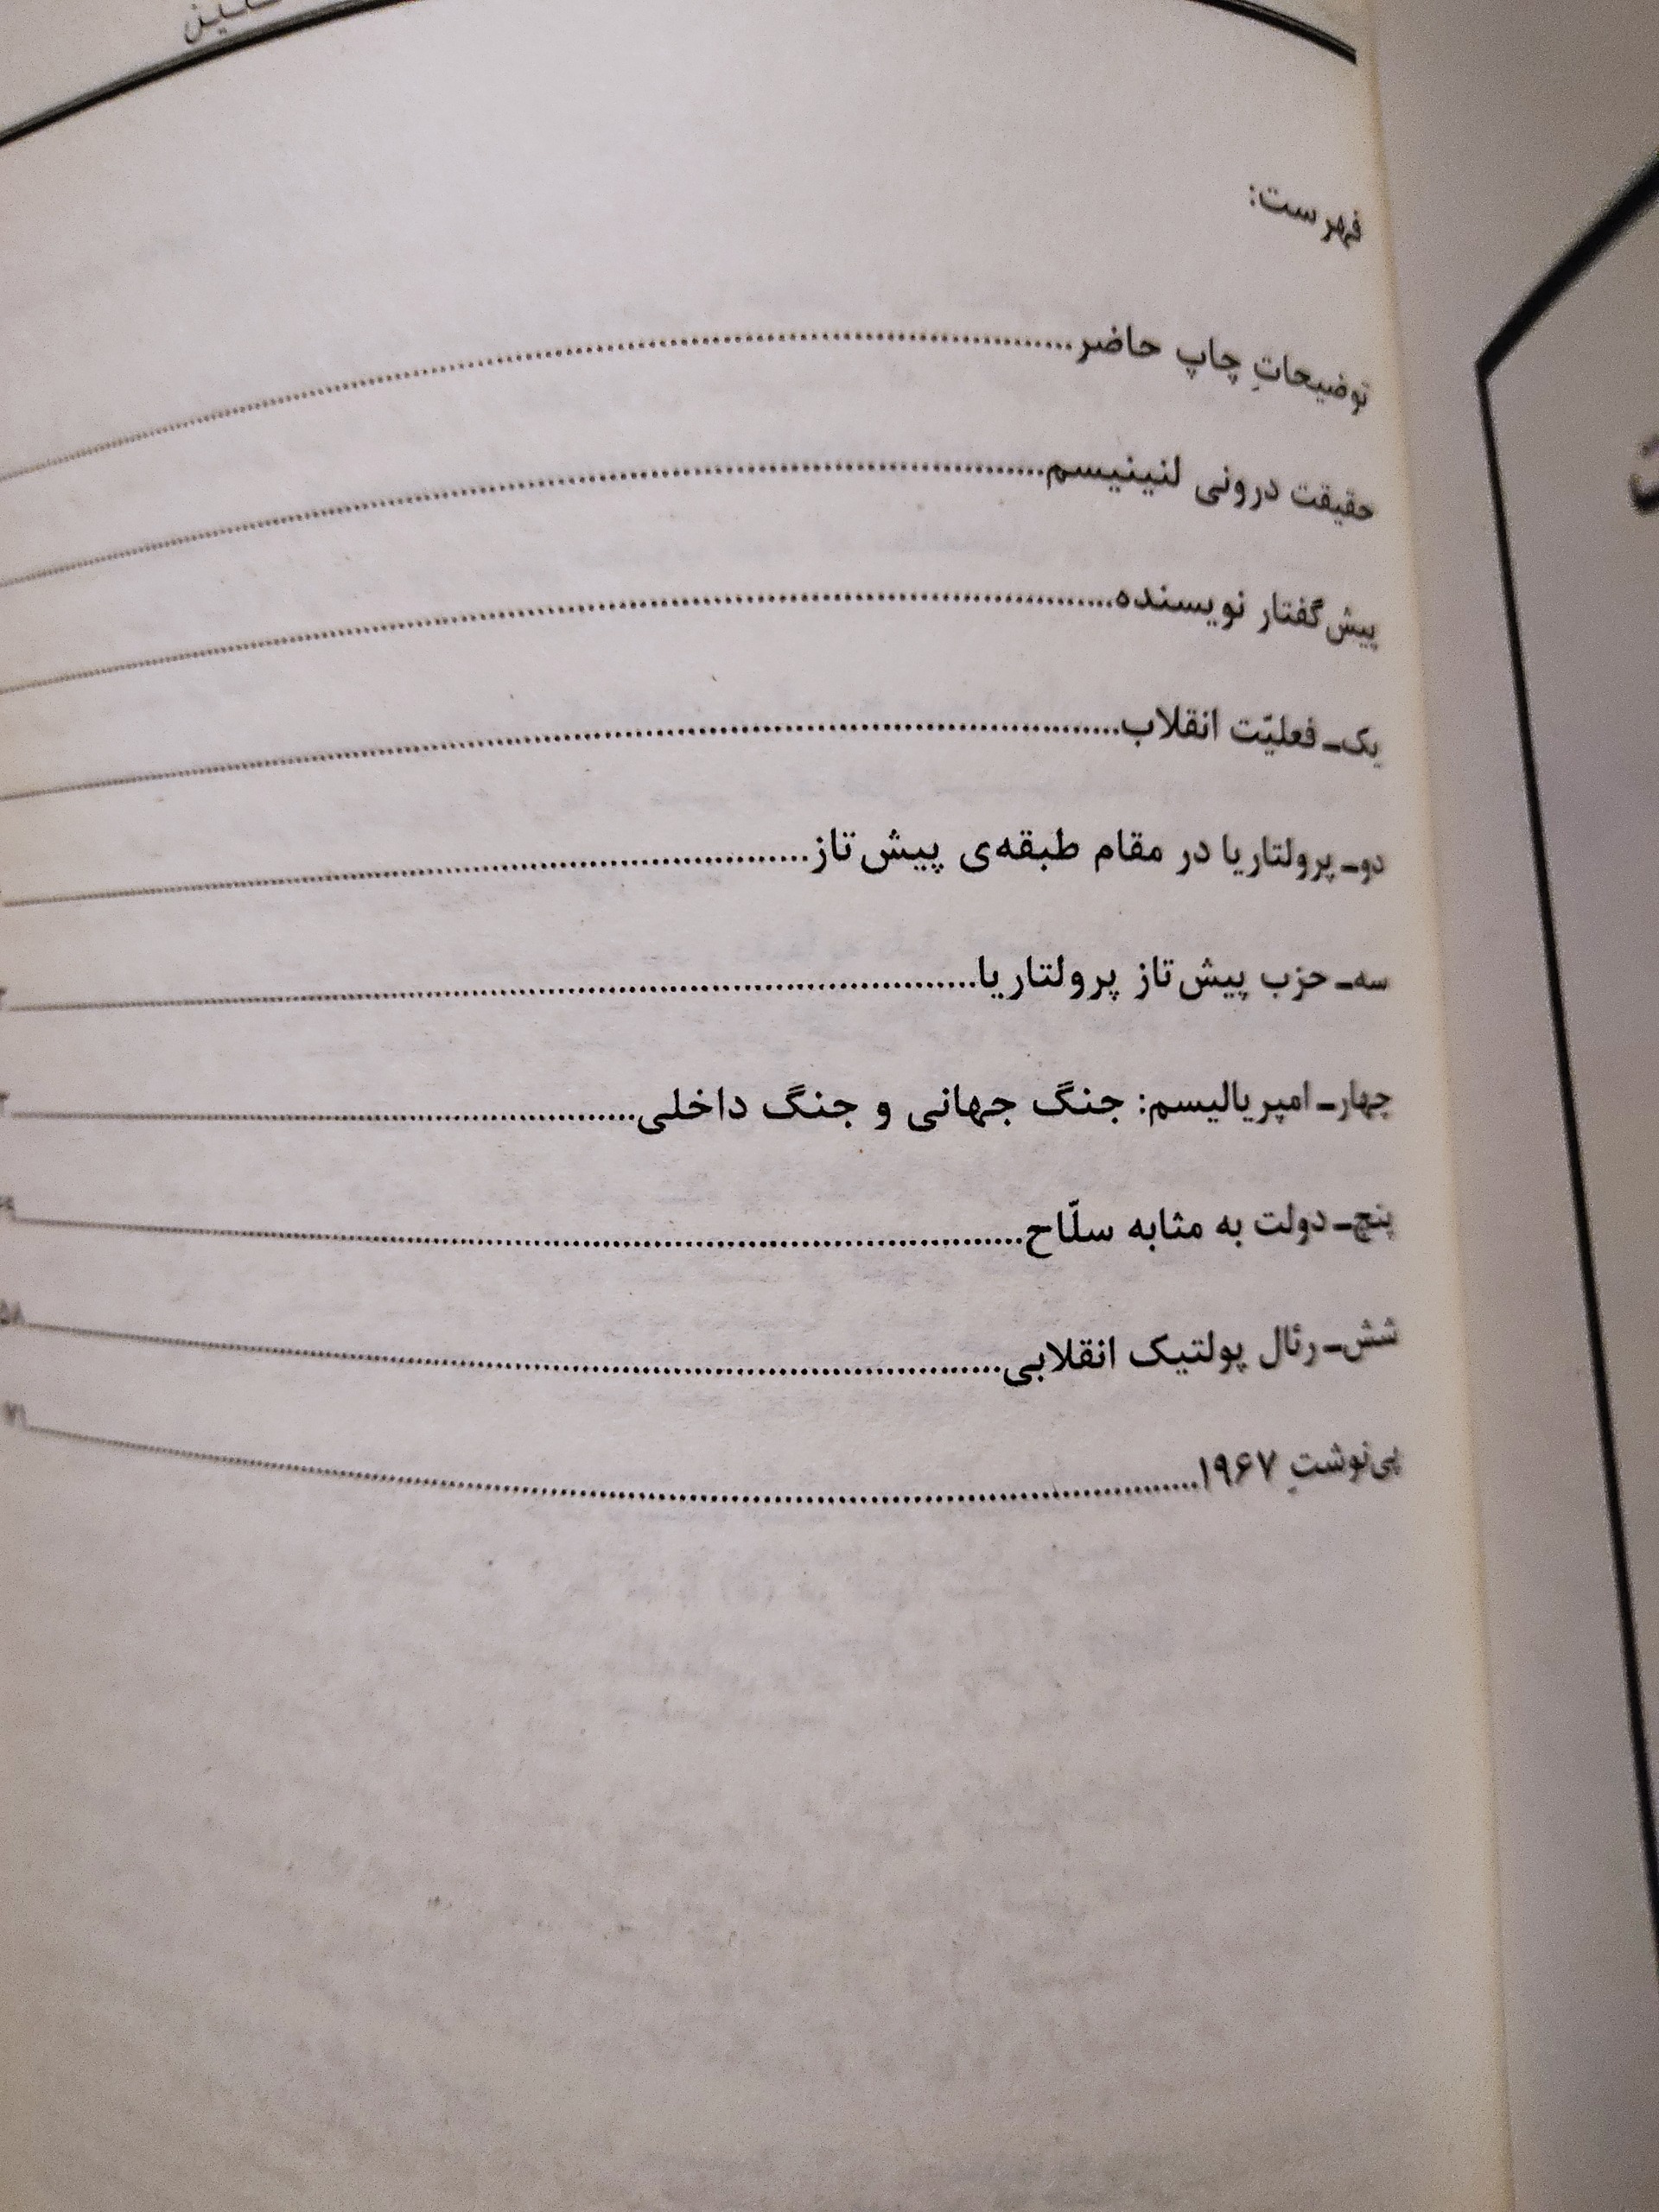 فهرست:
توضیحاتِ چاپ حاضر
حقیقت درونی لنینیسم
پیش‌گفتار نویسنده
یک_ فعلیّت انقلاب
دو_ پرولتاریا در مقام طبقه‌ی پیش‌تاز
سه_ حزب پیش‌تاز پرولتاریا
چهار_ امپریالیسم: جنگ جهانی و جنگ داخلی
پنج_ دولت به مثابه سلّاح
شش_ رئال پولتیک انقلابی
پی‌نوشتِ ۱۹۶۷